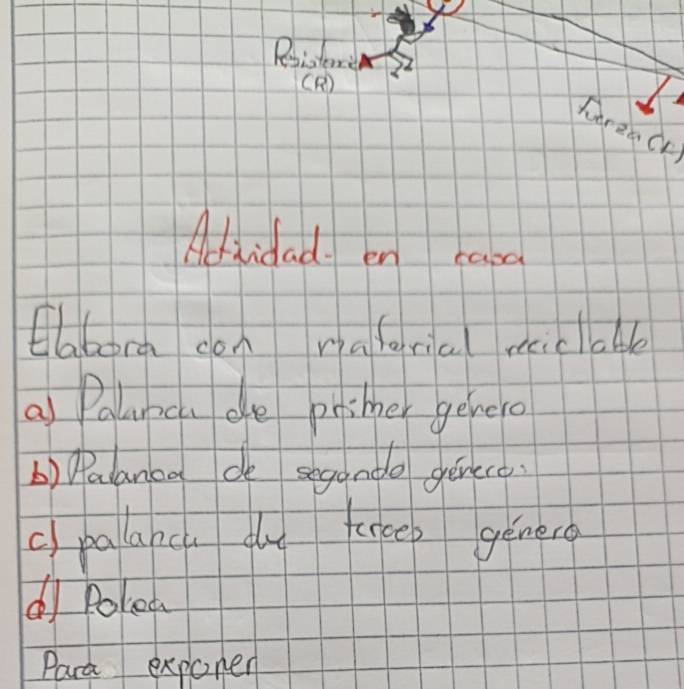 Resistencia
(R)
Fuerza (F)
Actividad en casa
Elabora con material reciclable
a) Palanca de primer género
b) Palanca de segundo género.
c) palanca de tercer género
d) Polea
Para exponer